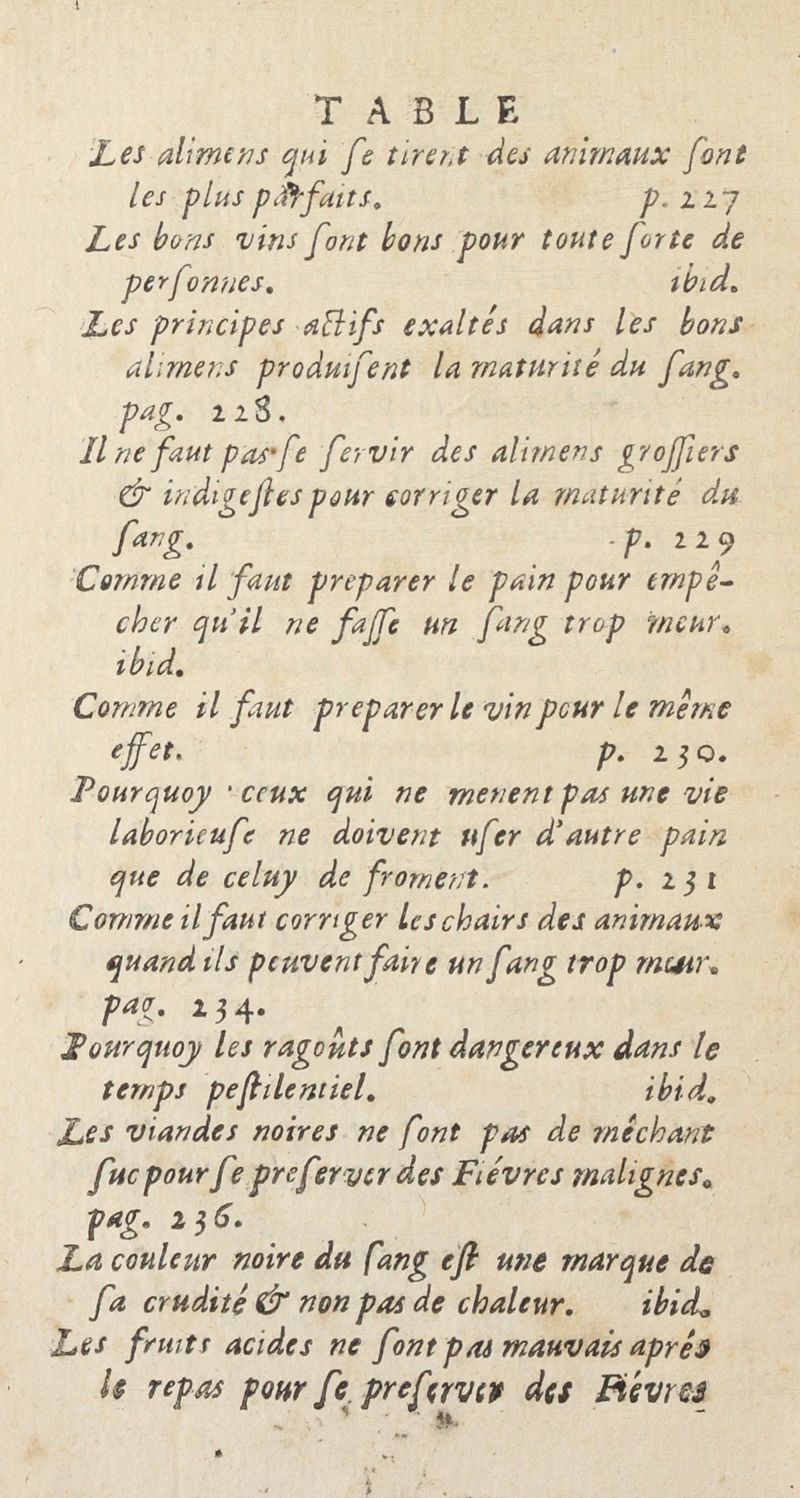 TABLE
Les alimens qui ſe tirent des animaux ſont
les plus parfaits. p. 227
Les bons vins ſont bons pour toute ſorte de
perſonnes. ibid.
Les principes actifs exaltés dans les bons
alimens produiſent la maturité du ſang.
pag. 228.
Il ne faut pas ſe ſervir des alimens groſſiers
& indigeſtes pour corriger la maturité du
ſang. p. 229
Comme il faut preparer le pain pour empê-
cher qu'il ne faſſe un ſang trop meur.
ibid.
Comme il faut preparer le vin pour le même
effet. p. 230.
Pourquoy ceux qui ne menent pas une vie
laborieuſe ne doivent uſer d'autre pain
que de celuy de froment. p. 231
Comme il faut corriger les chairs des animaux
quand ils peuvent faire un ſang trop meur.
pag. 234.
Pourquoy les ragoûts ſont dangereux dans le
temps peſtilentiel. ibid.
Les viandes noires ne ſont pas de méchant
ſuc pour ſe preſerver des Fiévres malignes.
pag. 236.
La couleur noire du ſang eſt une marque de
ſa crudité & non pas de chaleur. ibid.
Les fruits acides ne ſont pas mauvais aprés
le repas pour ſe preſerver des Fiévres